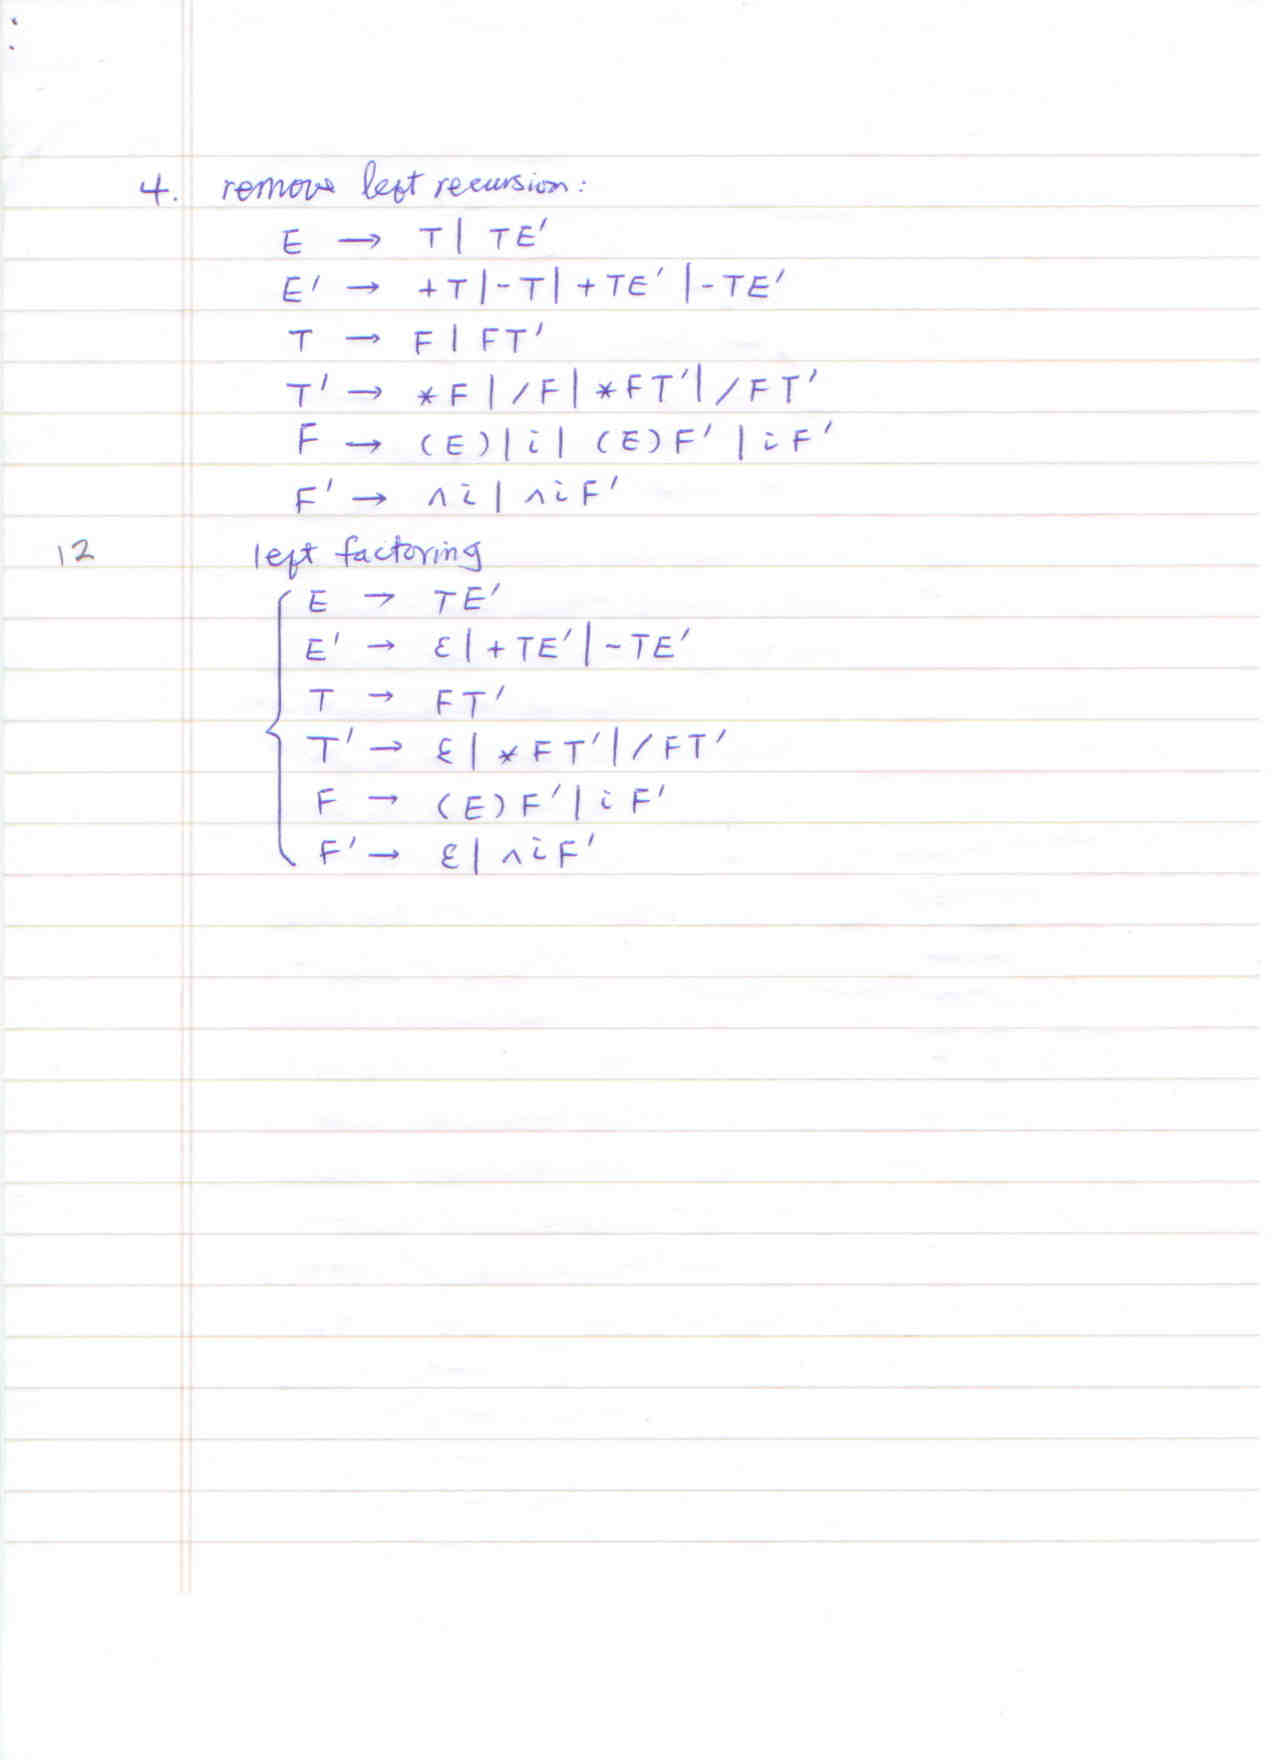 4. remove left recursion:
E → T | TE'
E' → +T | -T | +TE' | -TE'
T → F | FT'
T' → *F | /F | *FT' | /FT'
F → (E) | i | (E)F' | iF'
F' → ∧i | ∧iF'
12 left factoring
E → TE'
E' → ε | +TE' | -TE'
T → FT'
T' → ε | *FT' | /FT'
F → (E)F' | iF'
F' → ε | ∧iF'